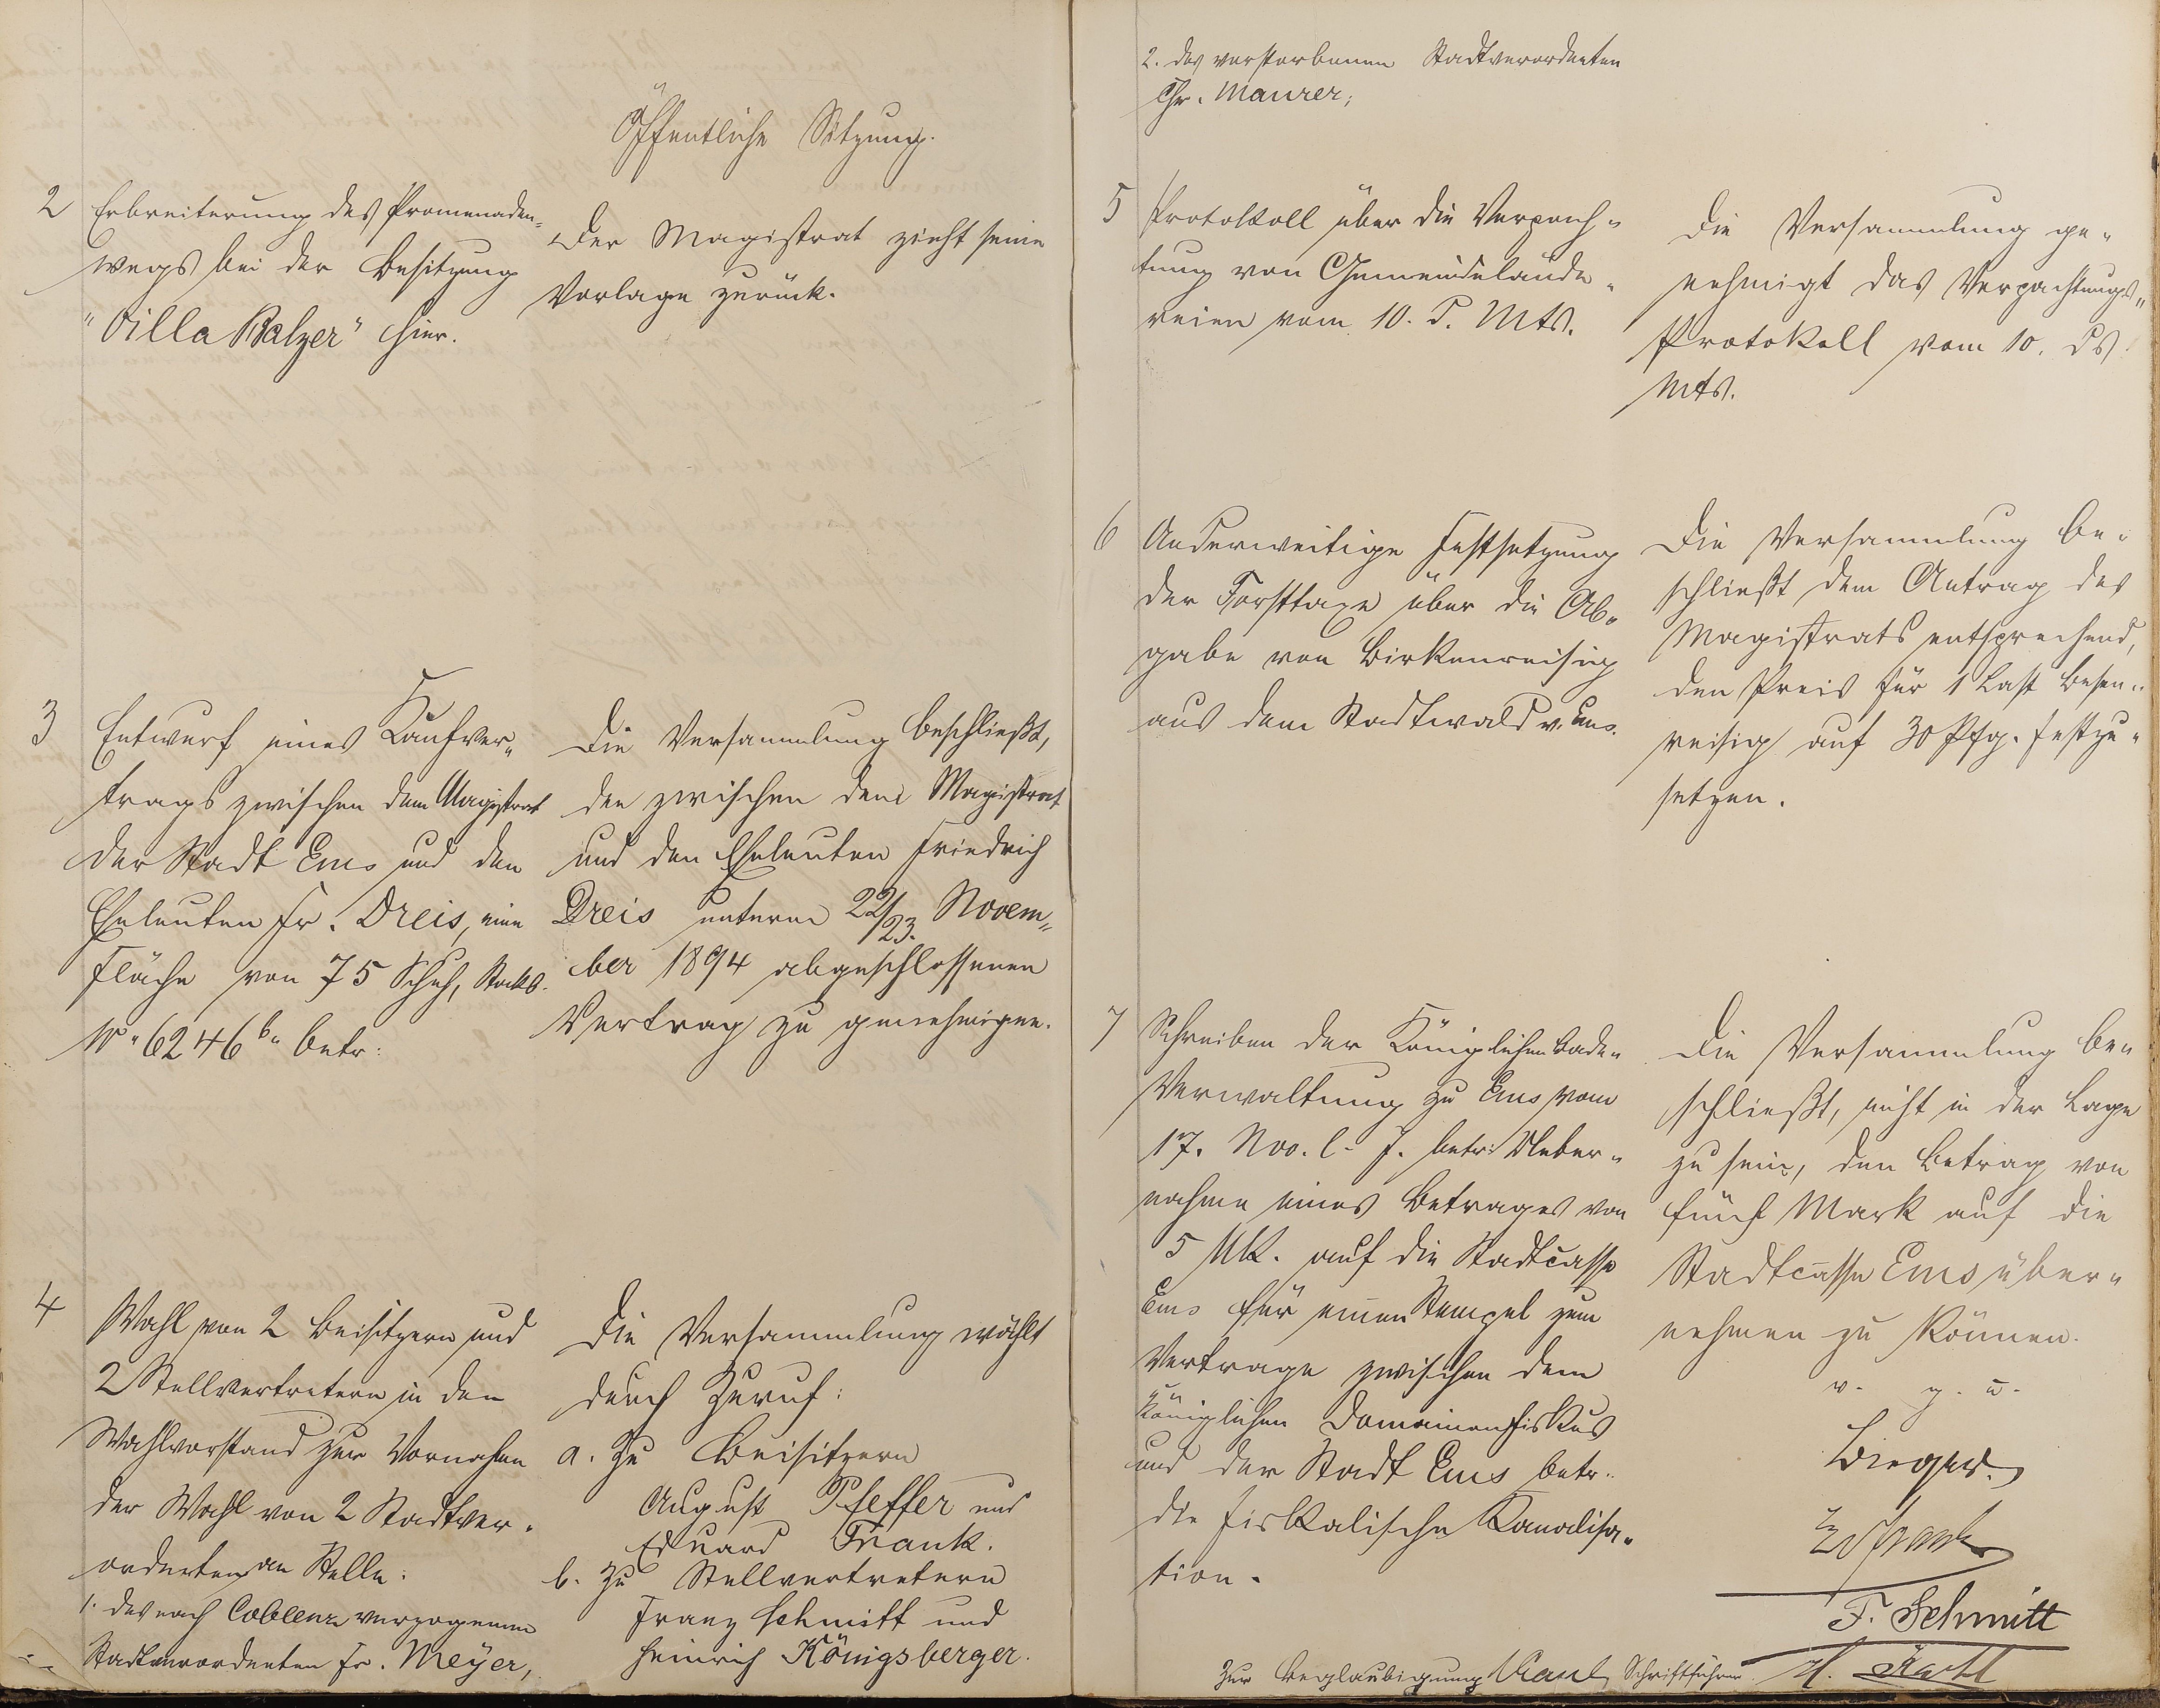 Öffentliche Sitzung.
2 Erbreiterung des Promenaden-
wegs bei der Besitzung
"Villa Balzer" hier.
Der Magistrat zieht seine
Vorlage zurück.
3 Entwurf eines Kaufver-
trags zwischen dem Magistrat
der Stadt Ems und den
Eheleuten Fr. Dreis, eine
Fläche von 75 Schuh, Stockb.
No. 6246 b. betr:
Die Versammlung beschließt,
den zwischen dem Magistrat
und den Eheleuten Friedrich
Dreis unterm 22/23. Novem-
ber 1894 abgeschlossenen
Vertrag zu genehmigen.
4 Wahl von 2 Beisitzern und
2 Stellvertretern in den
Wahlvorstand zur Vornahme
der Wahl von 2 Stadtver-
ordneten an Stelle:
1. des nach Coblenz verzogenen
Stadtverordneten Fr. Meyer,
Die Versammlung wählt
durch Zuruf:
a. Zu Beisitzern
August Pfeffer und
Eduard Frank.
b. Zu Stellvertretern
Franz Schmitt und
Heinrich Königsberger.
2. des verstorbenen Stadtverordneten
Chr. Maurer;
5 Protokoll über die Verpach-
tung von Gemeindelände-
reien vom 10. d. Mts.
Die Versammlung ge-
nehmigt das Verpachtungs-
Protokoll vom 10. ds
Mts.
6 Anderweitige Festsetzung
der Forsttaxe über die Ab-
gabe von Birkenreisig
aus dem Stadtwald v. Ems.
Die Versammlung be-
schließt dem Antrag des
Magistrats entsprechend,
den Preis für 1 Last Besen-
reisig auf 30 Pfg. festzu-
setzen.
7 Schreiben der Königlichen Bade-
Verwaltung zu Ems vom
17. Nov. l. J. betr: Ueber-
nahme eines Betrages von
5 Mk. auf die Stadtcasse
Ems für einen Stempel zum
Vertrage zwischen dem
Königlichen Domainenfiskus
und der Stadt Ems betr.
die fiskalische Kanalisa-
tion.
Die Versammlung be-
schließt, nicht in der Lage
zu sein, den Betrag von
fünf Mark auf die
Stadtcasse Ems über-
nehmen zu können.
v. g. u.
F. Schmitt
Zur Beglaubigung Schriftführer.